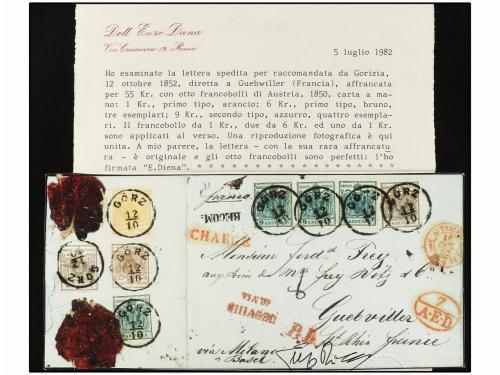 Dott. Enzo Diena
Via Crescenzio 19, Roma
5 luglio 1982
Ho esaminato la lettera spedita per raccomandata da Gorizia,
12 ottobre 1852, diretta a Guebwiller (Francia), affrancata
per 55 Kr. con otto francobolli di Austria, 1850, carta a ma-
no: 1 Kr., primo tipo, arancio; 6 Kr., primo tipo, bruno,
tre esemplari; 9 Kr., secondo tipo, azzurro, quattro esempla-
ri. Il francobollo da 1 Kr., due da 6 Kr. ed uno da 1 Kr.
sono applicati al verso. Una riproduzione fotografica è qui
unita. A mio parere, la lettera - con la sua rara affrancatu-
ra - è originale e gli otto francobolli sono perfetti: l'ho
firmata "E.Diena".
GÖRZ
12/10
GÖRZ
12/10
GÖRZ
12/10
GÖRZ
12/10
franco
RECOM.
CHARGÉ
GÖRZ
12/10
GÖRZ
12/10
GÖRZ
12/10
Monsieur Ferd. Frey
aux soins de Mrs Frey Witz & Co
Guebwiller
Ht Rhin france
VIA DI
CHIASSO
P.D.
7
A.E.D.
via Milano
Basel